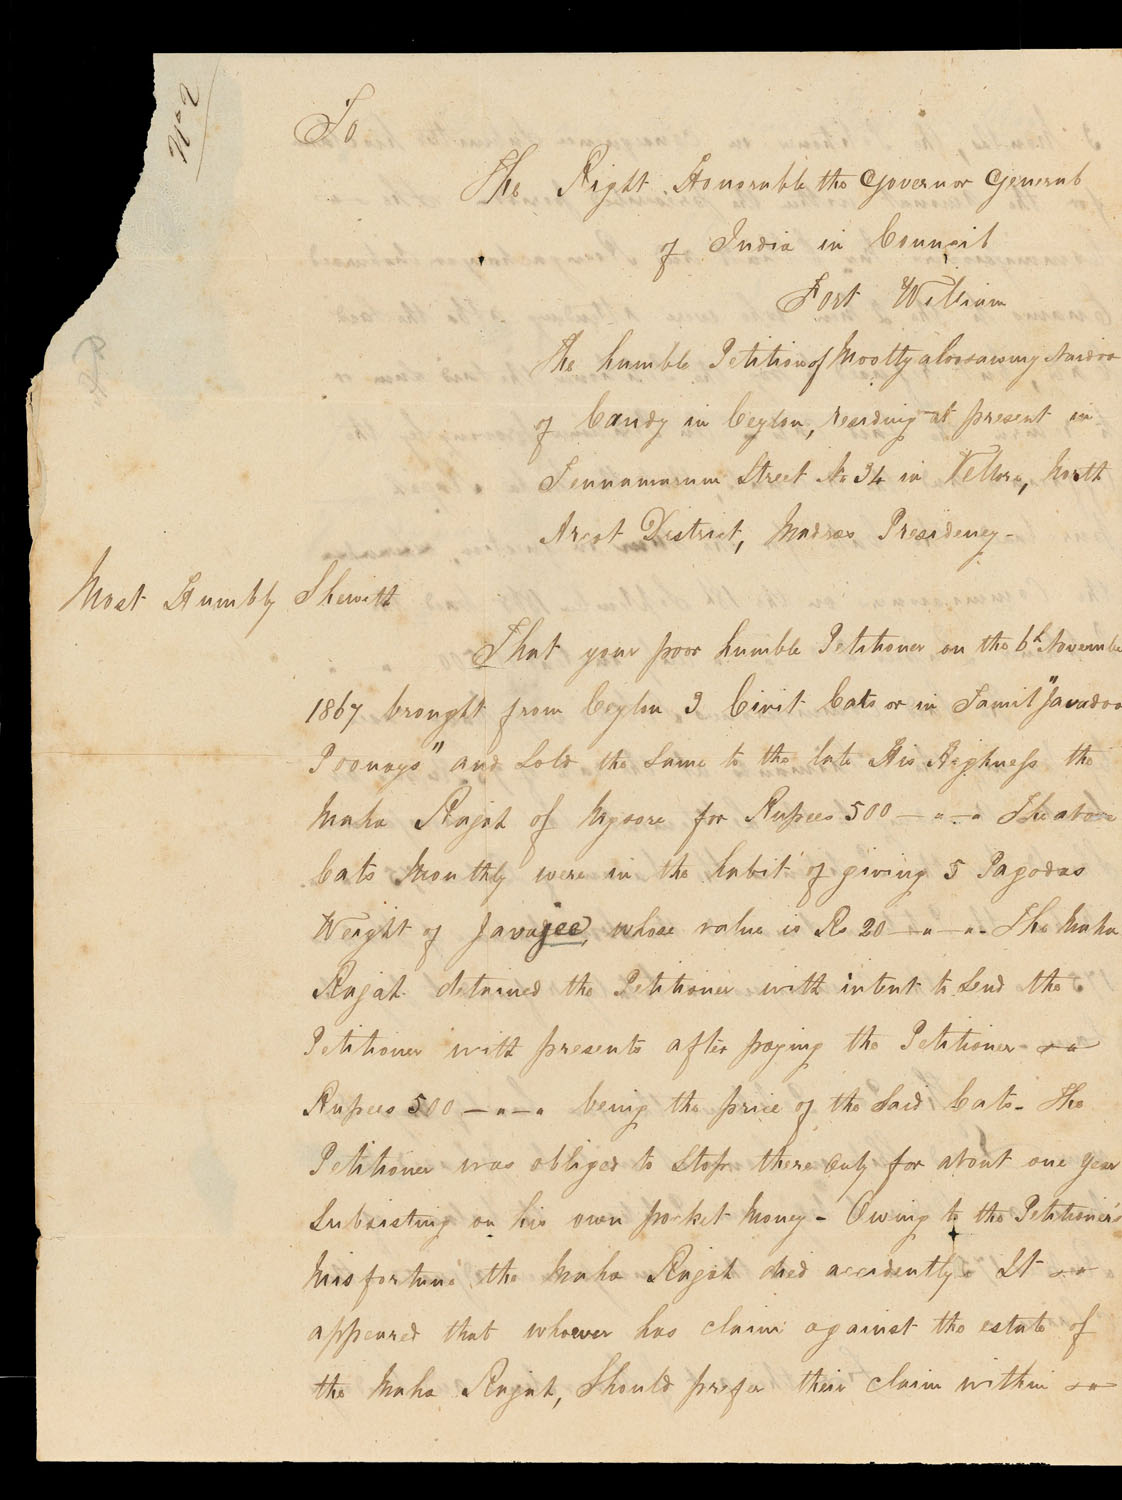 No 2
To
The Right Honorable the Governor General
of India in Council
Fort William
The humble Petition of Moottyaloosawmy Naidoo
of Candy in Ceylon, residing at present in
Tennamarum Street No 34 in Vellore, North
Arcot District, Madras Presidency -
Most Humbly Sheweth
That your poor humble Petitioner on the 6th November
1867 brought from Ceylon 3 Civit Cats or in Tamil "Javadoo
Poonays" and Sold the Same to the late His Highness the
Maha Rajah of Mysore for Rupees 500 — " — " The above
Cats Monthly were in the habit of giving 5 Pagodas
Weight of Javajee, whose value is Rs 20 — " — ". The Maha
Rajah detained the Petitioner with intent to Send the
Petitioner with presents after paying the Petitioner
Rupees 500 — " — " being the price of the Said Cats - The
Petitioner was obliged to Stop there only for about one year
Subsisting on his own pocket Money - Owing to the Petitioner's
Misfortune the Maha Rajah died accidently. It
appeared that whoever has claim against the estate of
the Maha Rajah, Should prefer their claim within